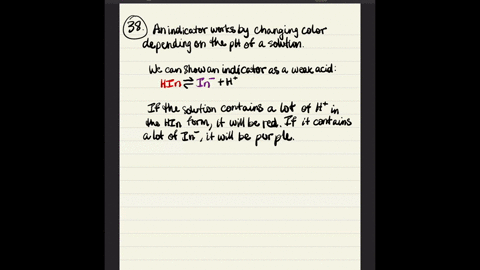 38. An indicator works by changing color
depending on the pH of a solution.
We can show an indicator as a weak acid:
HIn ⇌ In⁻ + H⁺
If the solution contains a lot of H⁺ in
the HIn form, it will be red. If it contains
a lot of In⁻, it will be purple.